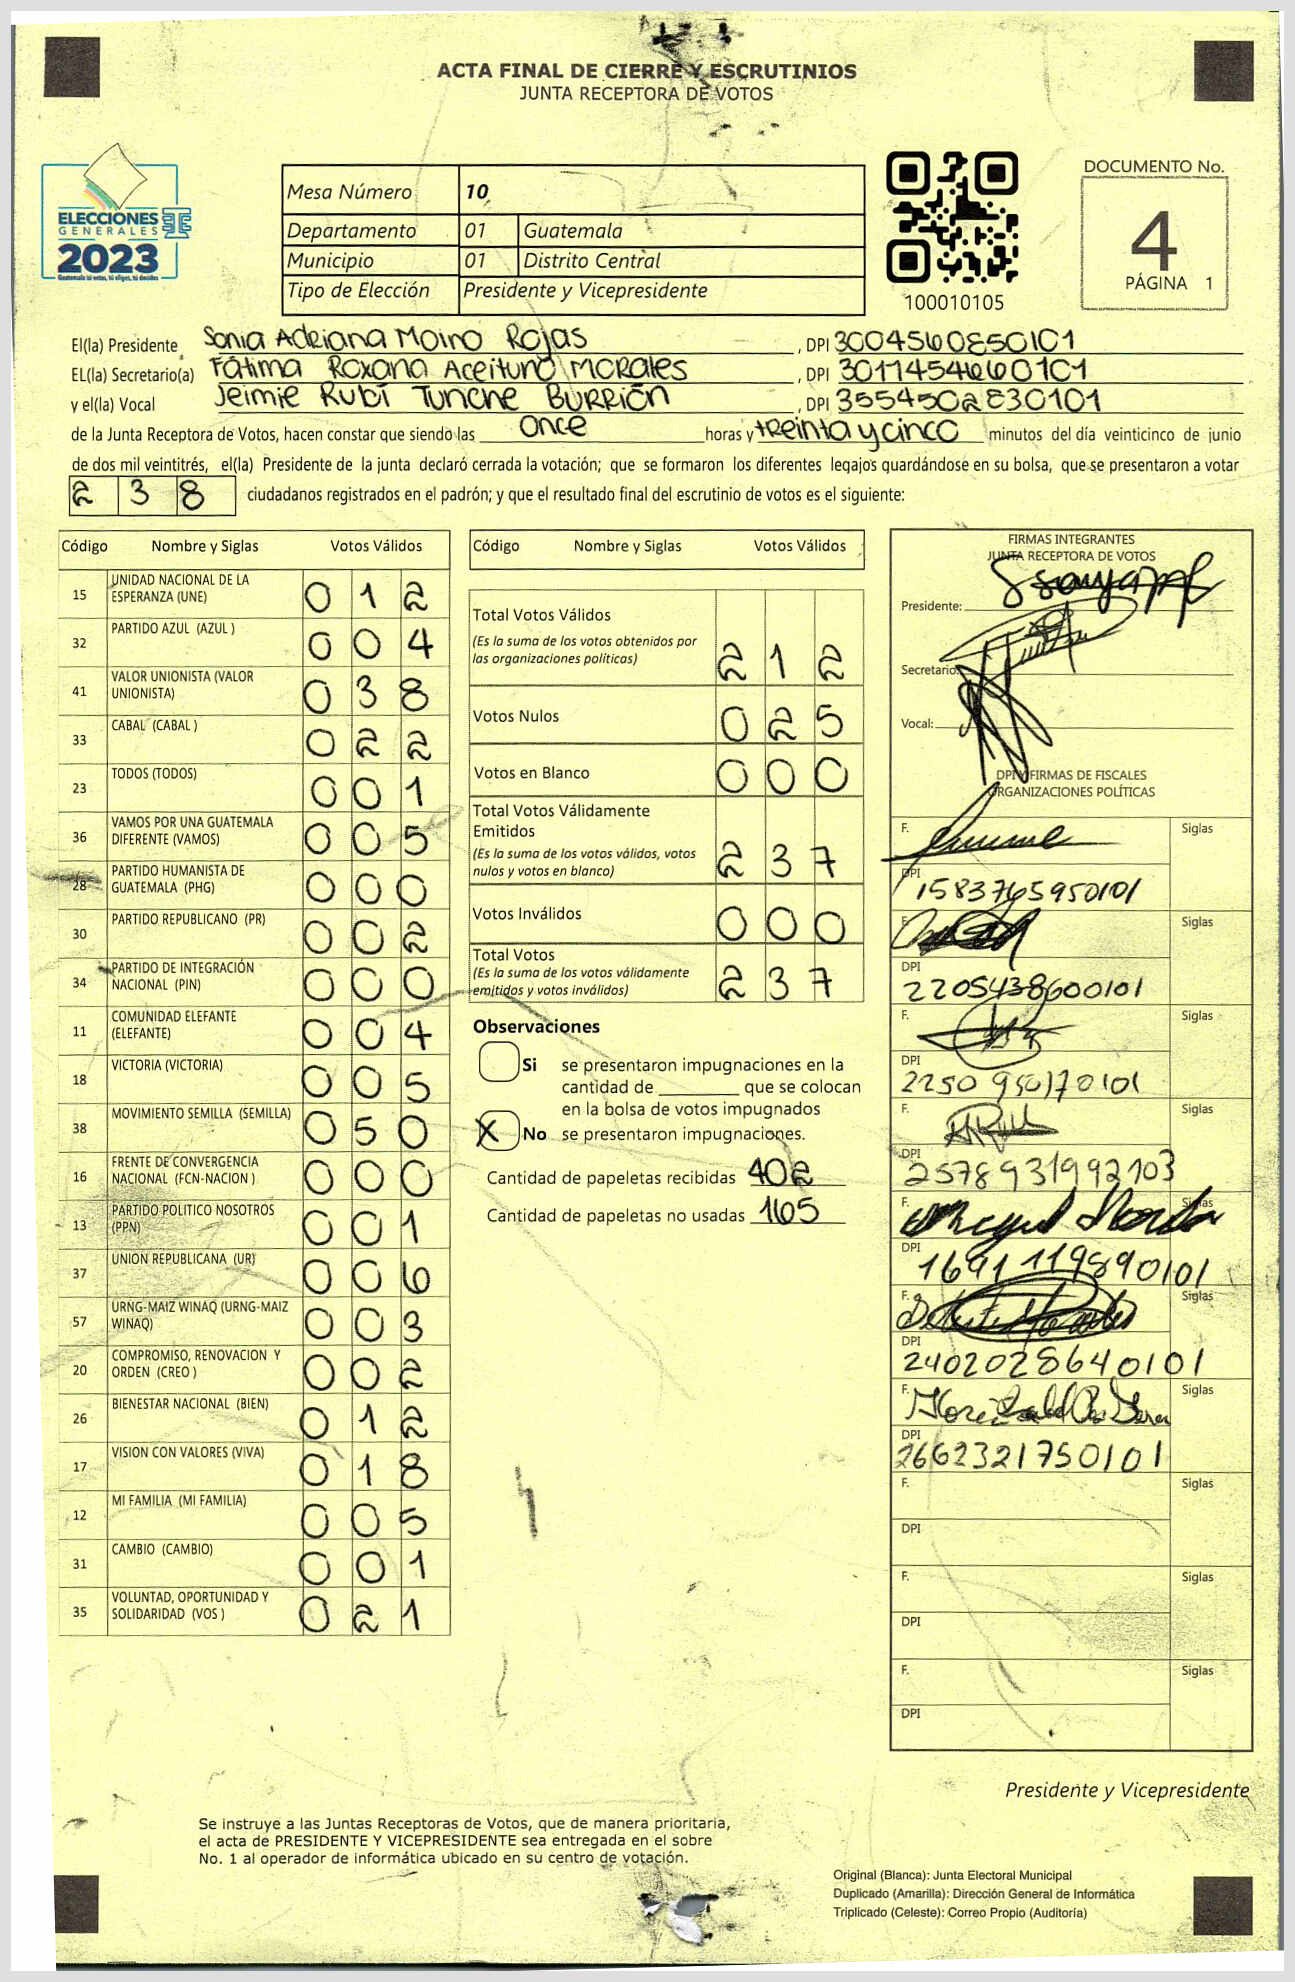 ACTA FINAL DE CIERRE Y ESCRUTINIOS
JUNTA RECEPTORA DE VOTOS
ELECCIONES
GENERALES
2023
Mesa Número 10
Departamento 01 Guatemala
Municipio 01 Distrito Central
Tipo de Elección Presidente y Vicepresidente
100010105
DOCUMENTO No.
4
PÁGINA 1
El(la) Presidente Sonia Adriana Moiro Rojas, DPI 3004560850101
EL(la) Secretario(a) Fátima Roxana Aceituno Morales, DPI 3011454660101
y el(la) Vocal Jeimie Rubí Tunche Burrión, DPI 3554502830101
de la Junta Receptora de Votos, hacen constar que siendo las once horas y treinta y cinco minutos del día veinticinco de junio
de dos mil veintitrés, el(la) Presidente de la junta declaró cerrada la votación; que se formaron los diferentes legajos guardándose en su bolsa, que se presentaron a votar
238 ciudadanos registrados en el padrón; y que el resultado final del escrutinio de votos es el siguiente:
Código Nombre y Siglas Votos Válidos
15 UNIDAD NACIONAL DE LA ESPERANZA (UNE) 012
32 PARTIDO AZUL (AZUL ) 004
41 VALOR UNIONISTA (VALOR UNIONISTA) 038
33 CABAL (CABAL ) 022
23 TODOS (TODOS) 001
36 VAMOS POR UNA GUATEMALA DIFERENTE (VAMOS) 005
28 PARTIDO HUMANISTA DE GUATEMALA (PHG) 000
30 PARTIDO REPUBLICANO (PR) 002
34 PARTIDO DE INTEGRACIÓN NACIONAL (PIN) 000
11 COMUNIDAD ELEFANTE (ELEFANTE) 004
18 VICTORIA (VICTORIA) 005
38 MOVIMIENTO SEMILLA (SEMILLA) 050
16 FRENTE DE CONVERGENCIA NACIONAL (FCN-NACION ) 000
13 PARTIDO POLITICO NOSOTROS (PPN) 001
37 UNION REPUBLICANA (UR) 006
57 URNG-MAIZ WINAQ (URNG-MAIZ WINAQ) 003
20 COMPROMISO, RENOVACION Y ORDEN (CREO ) 002
26 BIENESTAR NACIONAL (BIEN) 012
17 VISION CON VALORES (VIVA) 018
12 MI FAMILIA (MI FAMILIA) 005
31 CAMBIO (CAMBIO) 001
35 VOLUNTAD, OPORTUNIDAD Y SOLIDARIDAD (VOS ) 021
Código Nombre y Siglas Votos Válidos
Total Votos Válidos
(Es la suma de los votos obtenidos por
las organizaciones políticas) 212
Votos Nulos 025
Votos en Blanco 000
Total Votos Válidamente
Emitidos
(Es la suma de los votos válidos, votos
nulos y votos en blanco) 237
Votos Inválidos 000
Total Votos
(Es la suma de los votos válidamente
emitidos y votos inválidos) 237
Observaciones
Si se presentaron impugnaciones en la
cantidad de ________ que se colocan
en la bolsa de votos impugnados
X No se presentaron impugnaciones.
Cantidad de papeletas recibidas 402
Cantidad de papeletas no usadas 165
FIRMAS INTEGRANTES
JUNTA RECEPTORA DE VOTOS
Presidente:
Secretario:
Vocal:
DPI Y FIRMAS DE FISCALES
ORGANIZACIONES POLÍTICAS
F. Siglas
DPI 1583765950101
F. Siglas
DPI 2205438600101
F. Siglas
DPI 2250950170101
F. Siglas
DPI 2578931992103
F. Siglas
DPI 1691119890101
F. Siglas
DPI 2402028640101
F. Siglas
DPI 2662321750101
F. Siglas
DPI
F. Siglas
DPI
F. Siglas
DPI
Presidente y Vicepresidente
Se instruye a las Juntas Receptoras de Votos, que de manera prioritaria,
el acta de PRESIDENTE Y VICEPRESIDENTE sea entregada en el sobre
No. 1 al operador de informática ubicado en su centro de votación.
Original (Blanca): Junta Electoral Municipal
Duplicado (Amarilla): Dirección General de Informática
Triplicado (Celeste): Correo Propio (Auditoría)